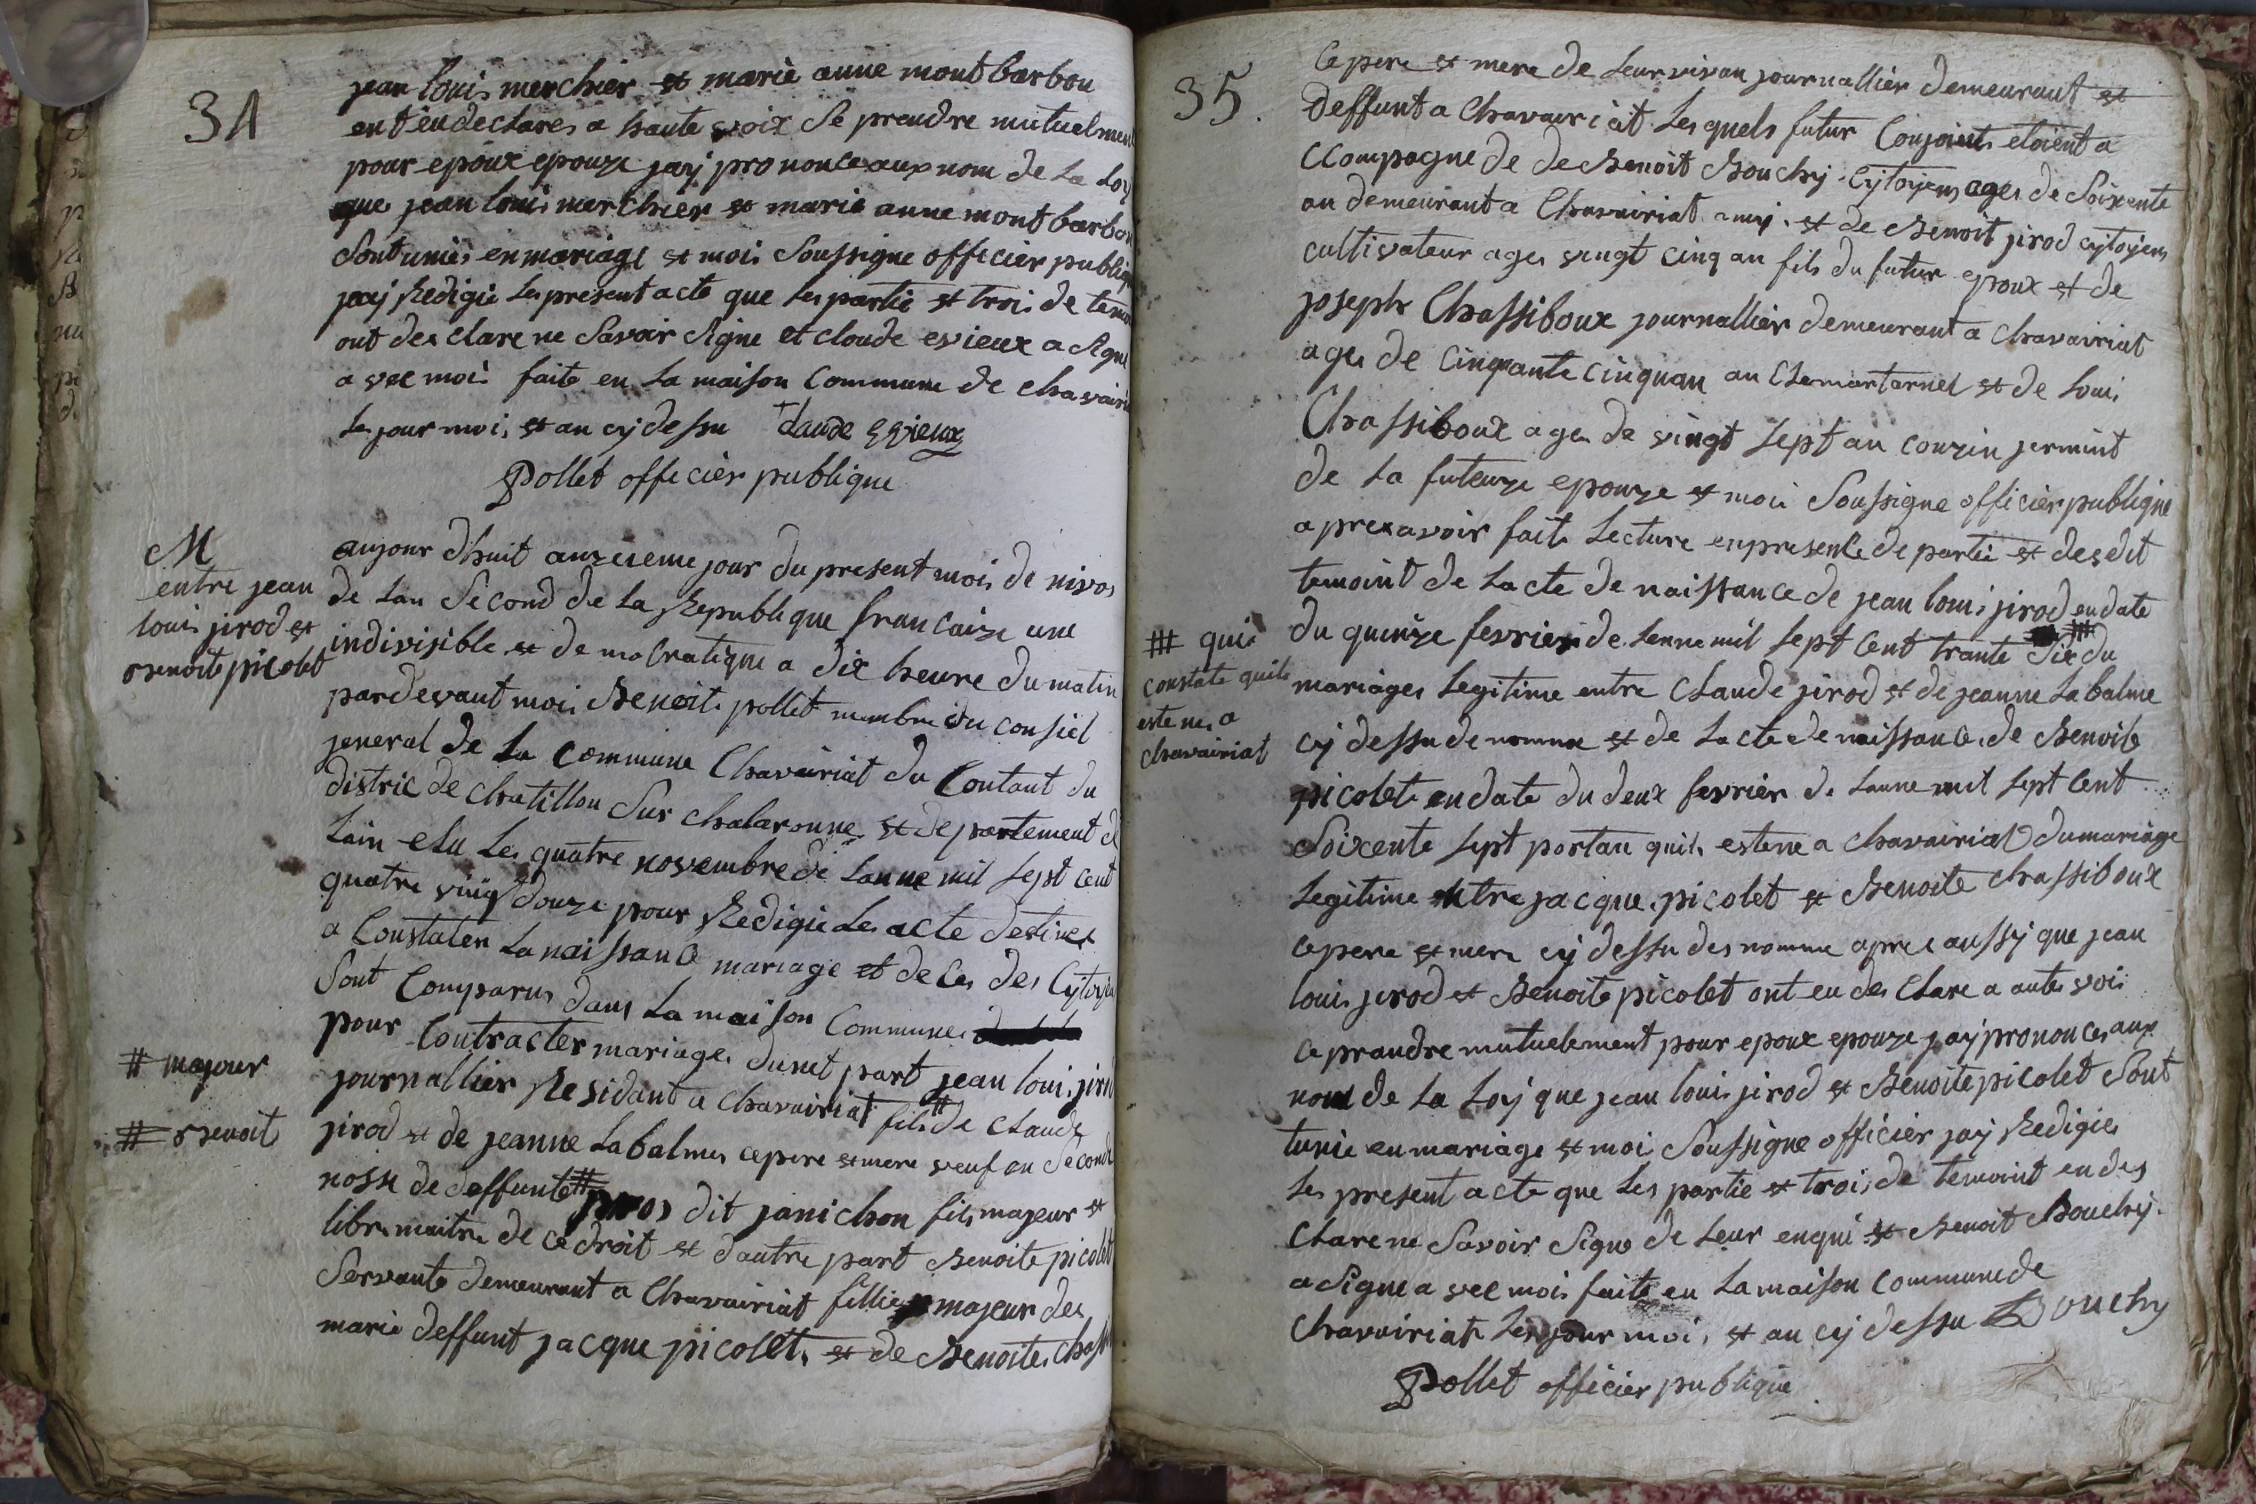 34
jean loui merchier et marie anne montbarbon
ent eu declares a haute voix Se prendre mutuelment
pour epoux epouze jay prononce aux nom de La Loy
que jean loui merchier et marie anne montbarbon
Sont unies en mariage et moi Soussigne officier publique
jaÿ Redigie Les present acte que Les partie et troi de temoin
ont des clare ne Savoir Signe et cloude evieux a Signe
a vec moi faite en La maison Commune de chavairiat
Les jour moi et an cy dessu Claude Evieux
Pollet officier publique
M
entre jean
loui jirod et
Benoite picolet
aujour dhuit anzeieme jour du present mois de nivos
de Lan Second de La Republique francaize une
indivisible et de mocratique a dix heure du matin
pardevant moi Benoit pollet membre du consiel
jeneral de La commune Chavairiat du Contant du
distric de chatillon Sur chalaronne et departement de
Lain elu Les quatre novembre de Lanne mil Sept cent
quatre vingt douze pour Redigie Les acte destines
a Constater La naissance mariage et de ces des Cytoyen
Sont Comparus dans La maison Commune
pour Contracter mariage dunet part jean loui jirod
# majeur
journallier Residant a chavairiat fils # de Claude
# Benoit
jirod et de jeanne Labalme ce pere et mere veuf en Seconde
nosse de deffunte # dit janichon fils majeur et
libre maitre de ce droit et dautre part Benoite picolet
Servante demeurant a Chavairiat fillie majeur des
marie deffunt jacque picolet et de Benoite
35.
Cepere et mere de Leur vivan journallier demeurant et
deffunt a Chavairiat Les quels futur Conjoint etoient a
ccompagne de de Benoit Bouchy Cytoyens ages de Soixente
an demeurant a Chavairiat amy et de Benoit jirod cytoyens
cultivateur ages vingt cinq an fils du futur epoux et de
joseph Chassiboux journallier demeurant a chavairiat
ages de cinquante cinquan et de Loui
Chassiboux ages de vingt Sept an couzin jermint
de La futeuze epouze et moi Soussigne officier publique
a prex avoir faite Lecture en presence de partie et desdit
temoint de Lacte de naissance de jean loui jirod en date
du quenize fevrier de Lenne mil Sept Cent trante Six ## du
## qui
constate quils
este nes a
chavairiat
mariages Legitime entre Claude jirod et de jeanne Labalme
cy dessu denomme et de Lacte de naissance de Benoite
picolet en date du deux fevrier de Lanne mil Sept Cent
Soixente Sept portan quils estene a chavairiat du mariage
Legitime entre jacque picolet et Benoite chassiboux
cepere et mere cy dessu des nomme apres aussy que jean
loui jirod et Benoite picolet ont eu des Clare a autes voi
ce prandre mutuelement pour epoux epouze jaÿ prononces aux
nom de La Loy que jean loui jirod et Benoite picolet Sont
tunie en mariage et moi Soussigne officier jaÿ Redigies
Les present acte que Les partie et troi de temoint en des
Clare ne Savoir Signe de Leur enqui et Benoit Bouchy
a Signe a vec moi faite en La maison commune de
Chavairiat Les jour moi et an cy dessu Bouchy
Pollet officier publique